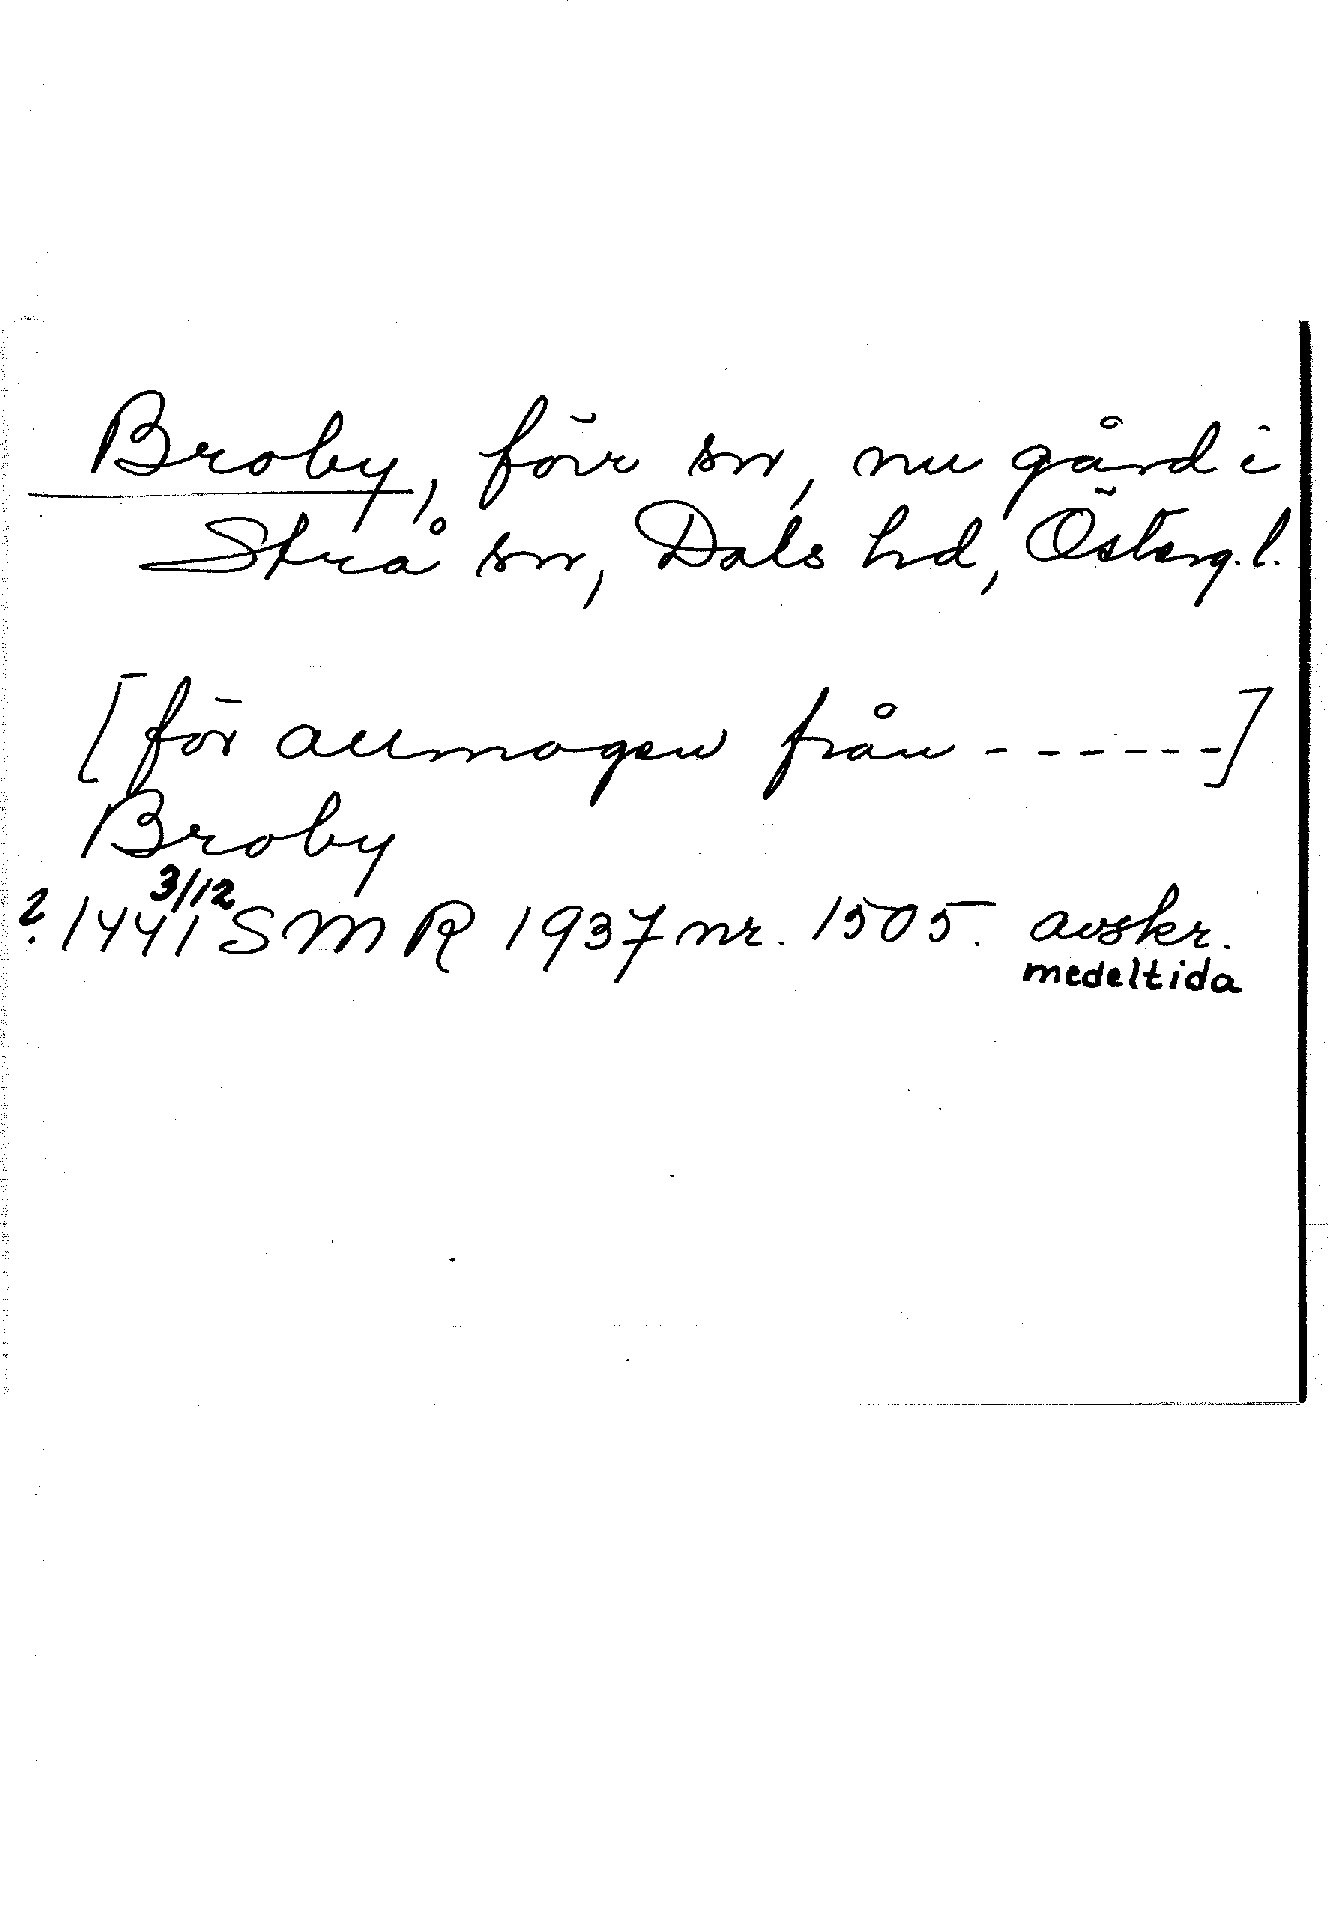 Broby, förr sn, nu gård i
Strå sn, Dals hd, Österg.l.
[för allmogen från ------]
Broby
3/12
?. 1441 SMR 1937 nr. 1505. avskr.
medeltida